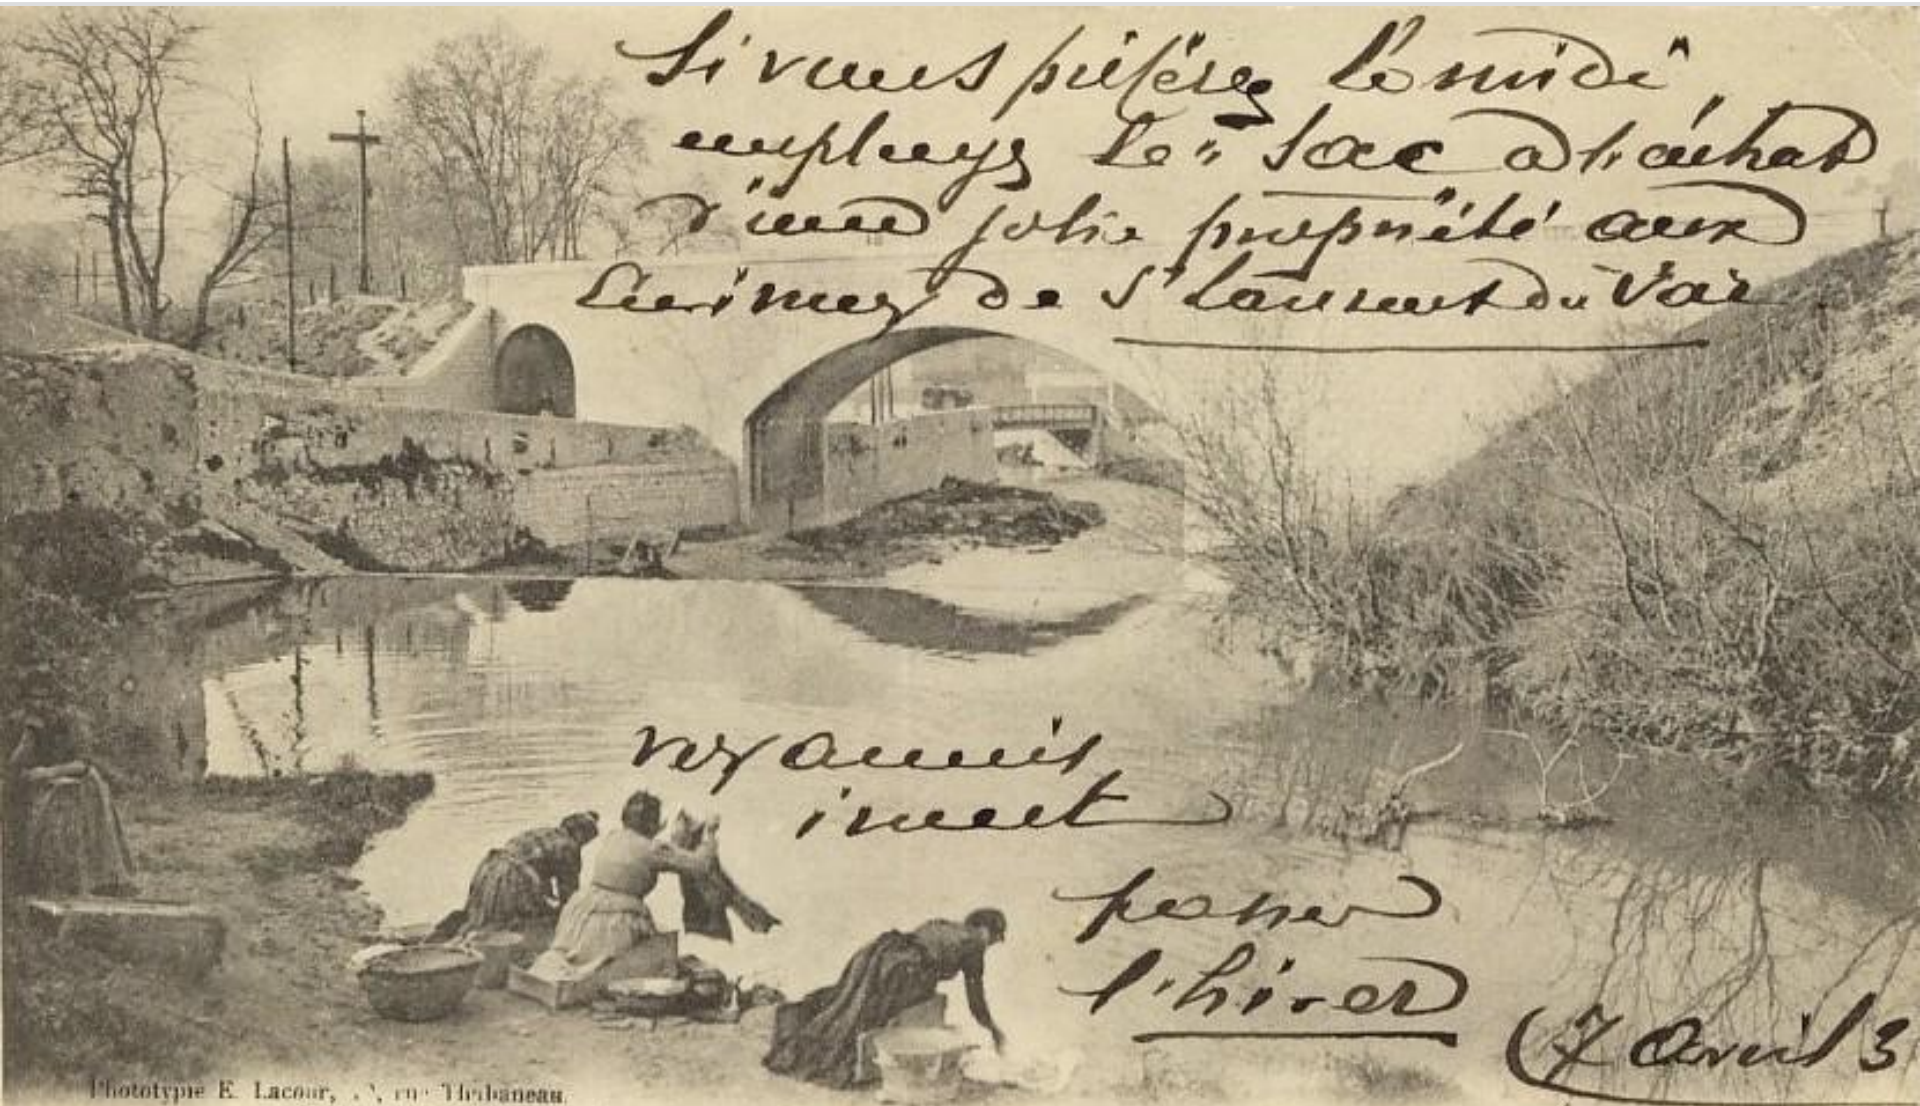 Si vous préférez le midi,
employez le " sac à l'achat
d'une jolie propriété aux
de St Laurent du Var
vos amis
iront
passer
l'hiver
(7 avril 3
Phototypie E. Lacour, rue Thubaneau.